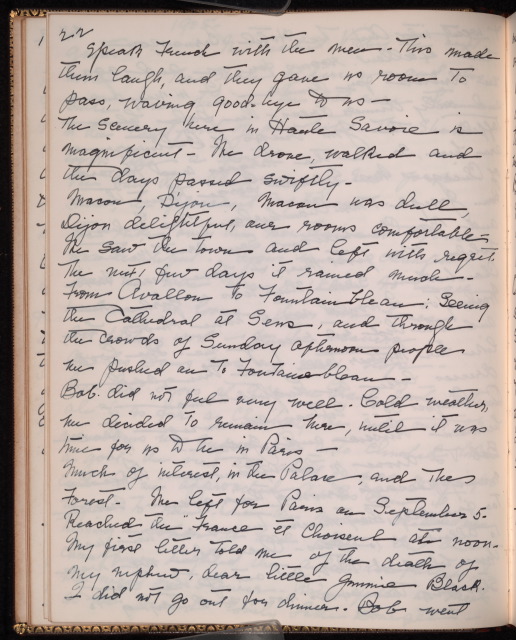 22
Speak French with the men - This made
them laugh, and they gave us room to
pass, waving good-bye to us -
The scenery here in Haute Savoie is
magnificent - We drove, walked and
the days passed swiftly -
Macon, Dijon, Macon was dull,
Dijon delightful, our rooms comfortable -
We saw the town and left with regret.
The next few days it rained much -
From Avallon to Fountainbleau; Seeing
the Cathedral at Sens, and through
the crowds of Sunday afternoon people
we pushed on to Fontainebleau -
Bob did not feel very well - Cold weather,
we decided to remain here, until it was
time for us to be in Paris -
Much of interest, in the Palace, and the
Forest - We left for Paris on September 5 -
Reached the "France et Choiseul at noon -
My first letter told me of the death of
my nephew, dear little Jimmie Black.
I did not go out for dinner - Bob went